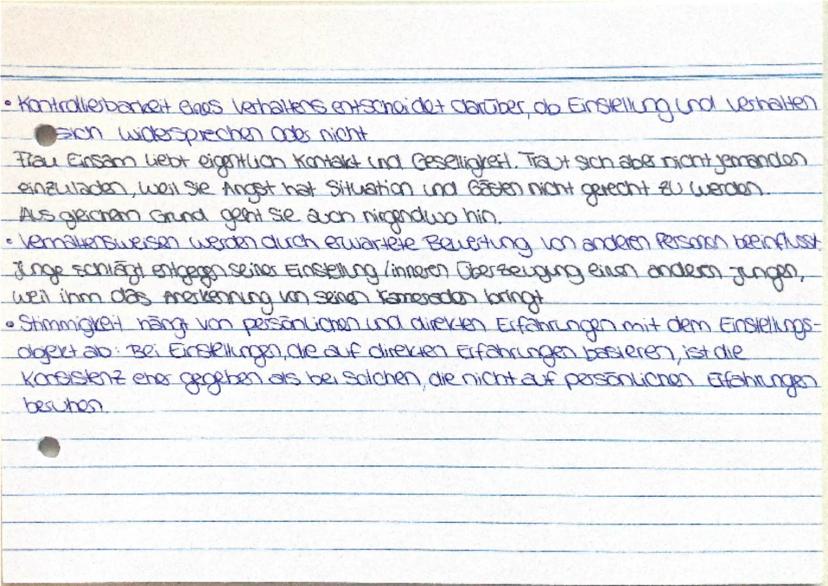 • Kontrollierbarkeit eines Verhaltens entscheidet darüber, ob Einstellung und Verhalten
sich widersprechen oder nicht
Frau Einsam liebt eigentlich Kontakt und Geselligkeit. Traut sich aber nicht jemanden
einzuladen, weil sie Angst hat Situation und Gästen nicht gerecht zu werden.
Aus gleichem Grund geht sie auch nirgendwo hin.
• Verhaltensweisen werden durch erwartete Bewertung von anderen Personen beeinflusst
Junge schlägt entgegen seiner Einstellung / inneren Überzeugung einen anderen Jungen,
weil ihm das Anerkennung von seinen Kameraden bringt
• Stimmigkeit hängt von persönlichen und direkten Erfahrungen mit dem Einstellungs-
objekt ab: Bei Einstellungen, die auf direkten Erfahrungen basieren, ist die
Konsistenz eher gegeben als bei solchen, die nicht auf persönlichen Erfahrungen
beruhen.